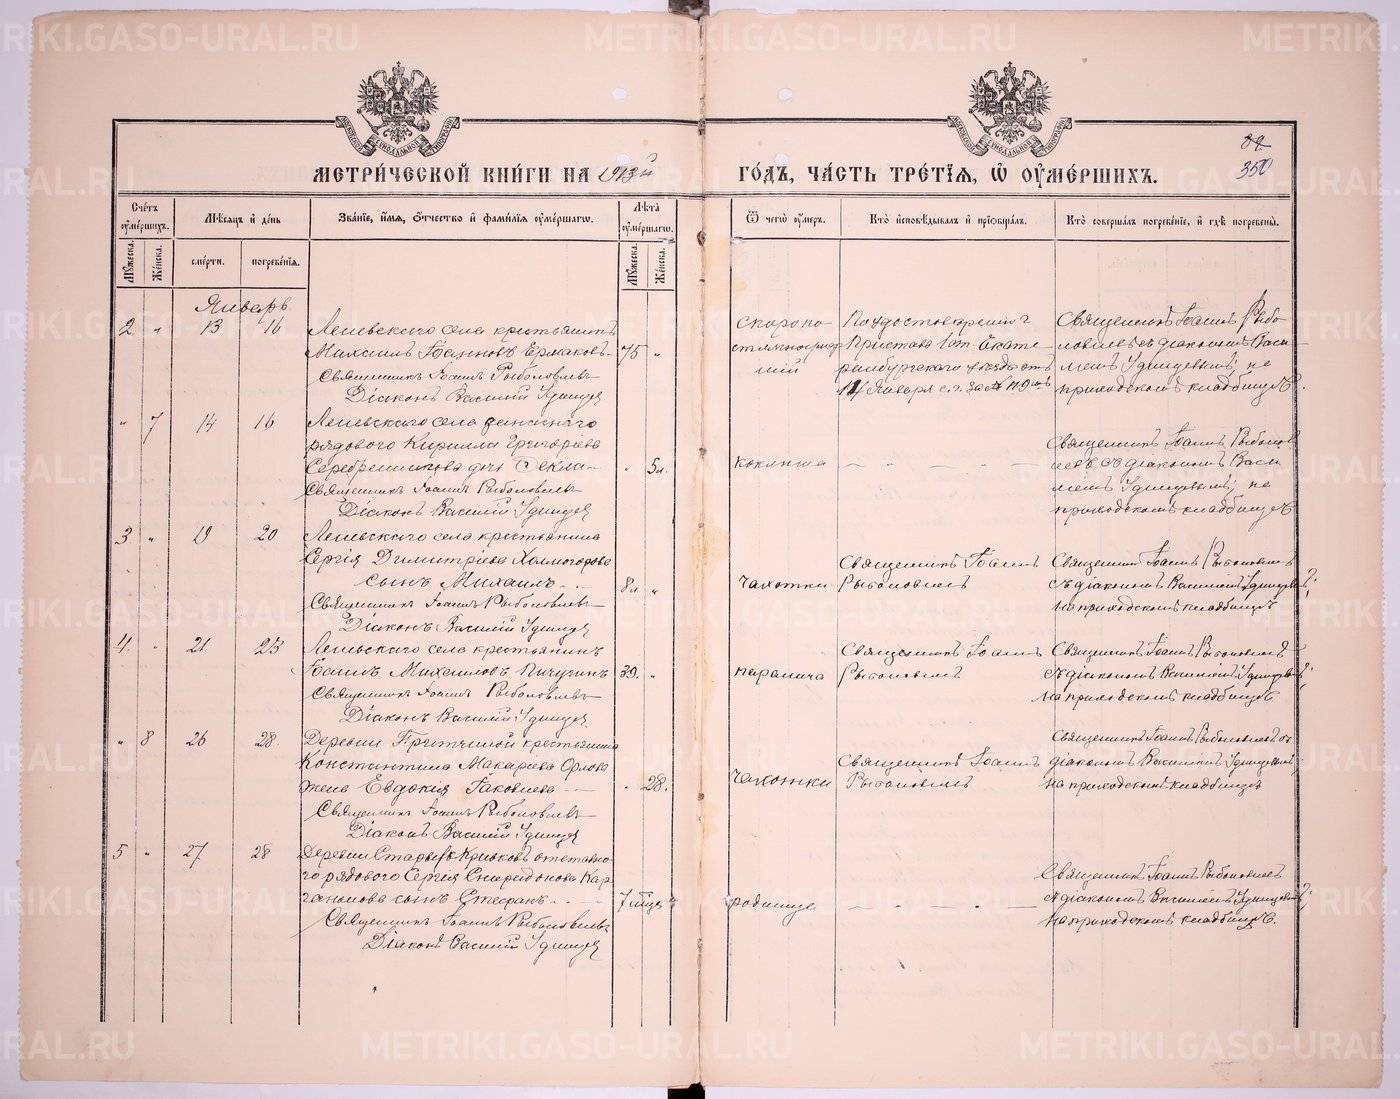 METRIKI.GASO-URAL.RU
МОСКОВСКОЙ СѴНОДАЛЬНОЙ ТИПОГРАФІИ
МЕТРИ́ЧЕСКОЙ КНИ́ГИ НА 1913й
ГО́ДЪ, ЧА́СТЬ ТРЕ́ТІЯ, Ѡ ОУМЕ́РШИХЪ.
350
Сче́тъ оуме́ршихъ.
Мꙋ́жеска.
Же́нска.
Мѣ́сяцъ и де́нь
сме́рти.
погребе́нія.
Зва́ніе, и́мя, о́тчество и фами́лія оуме́ршагѡ.
Лѣ́та оуме́ршагѡ.
Мꙋ́жеска.
Же́нска.
Ѿ чегѡ̀ оу́меръ.
Кто̀ исповѣ́дывалъ и прїѡбща́лъ.
Кто̀ соверша́лъ погребе́ніе, и гдѣ̀ погребены̀.
Январь
2 „ 13 16
села крестьянинъ
Михаилъ Іоанновъ Ермаковъ 75 „
Священникъ Іоаннъ Рыболовлевъ
Діаконъ Василій Удинцев
Скоропостижно
По удостоверенію
Пристава 1 ст. Екатеринбургскаго уезда отъ
14 Января с. г. за № 119
Священникъ Іоаннъ Рыболовлевъ съ діакономъ Василіемъ Удинцевымъ, на
приходскомъ кладбище.
„ 7 14 16
села
рядового Кирилла Григоріева
Серебренникова дочь Текла „ 5 л.
Священникъ Іоаннъ Рыболовлевъ
Діаконъ Василій Удинцев
коклюша
Священникъ Іоаннъ Рыболовлевъ съ діакономъ Василіемъ Удинцевымъ, на
приходскомъ кладбище
3 „ 19 20
села крестьянина
Сергія Димитріева Холмогорова
сынъ Михаилъ 8 л. „
Священникъ Іоаннъ Рыболовлевъ
Діаконъ Василій Удинцев
чахотки
Священникъ Іоаннъ
Рыболовлевъ
Священникъ Іоаннъ Рыболовлевъ
съ діакономъ Василіемъ Удинцевымъ
на приходскомъ кладбище
4. „ 21 23
села крестьянинъ
Іоаннъ Михаиловъ Пичугинъ 39. „
Священникъ Іоаннъ Рыболовлевъ
Діаконъ Василій Удинцев
паралича
Священникъ Іоаннъ
Рыболовлевъ
Священникъ Іоаннъ Рыболовлевъ
съ діакономъ Василіемъ Удинцевымъ
на приходскомъ кладбище
„ 8 26 28.
Деревни крестьянина
Константина Макаріева Орлова
жена Евдокия Іаковлева „ 28.
Священникъ Іоаннъ Рыболовлевъ
Діаконъ Василій Удинцев
чахотки
Священникъ Іоаннъ
Рыболовлевъ
Священникъ Іоаннъ Рыболовлевъ съ
діакономъ Василіемъ Удинцевымъ
на приходскомъ кладбище
5 „ 27 28
Деревни Старыхъ отставного рядового Сергія Спиридонова
сынъ Стефанъ 7 „
Священникъ Іоаннъ Рыболовлевъ
Діаконъ Василій Удинцев
родимца
Священникъ Іоаннъ Рыболовлевъ
съ діакономъ Василіемъ Удинцевымъ
на приходскомъ кладбище.